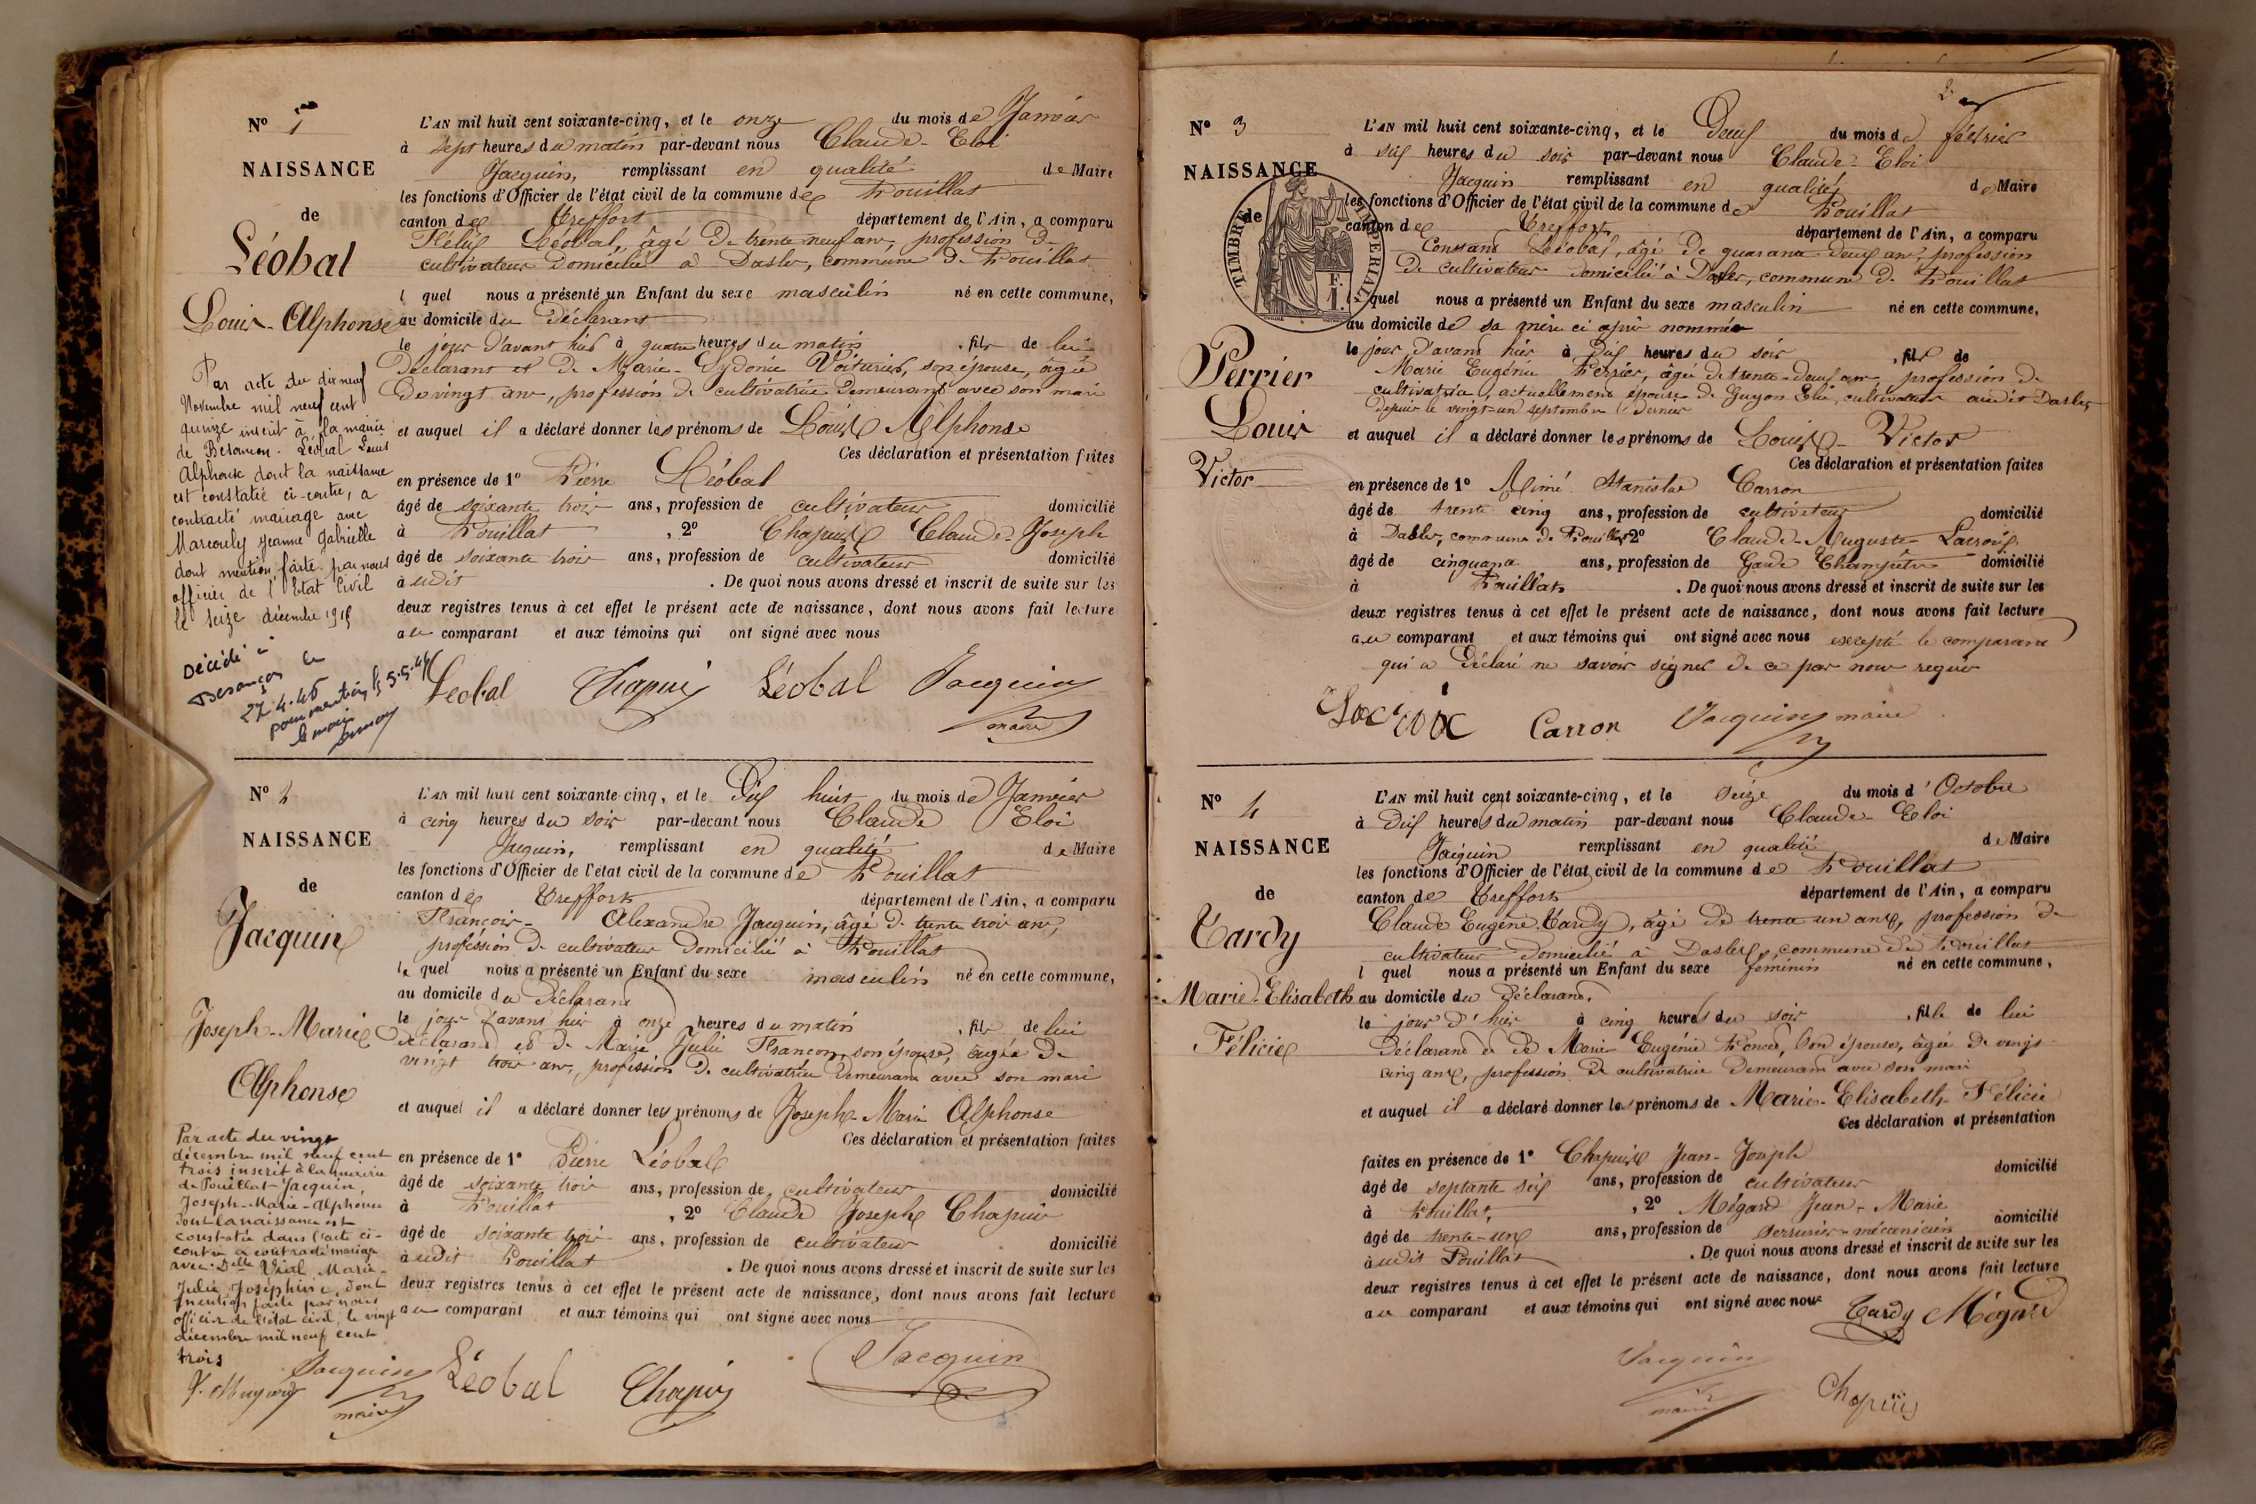 N° 1
NAISSANCE
de
Léobal
Louis-Alphonse
Par acte du dix neuf
Novembre mil neuf cent
quinze inscrit à la mairie
de Besançon. Léobal Louis
Alphonse dont la naissance
est constatée ci-contre, a
contracté mariage avec
Jeanne Gabrielle
dont mention faite par nous
officier de l'Etat Civil
le seize décembre 1915
Décédé à
Besançon le
27.4.46
pour mention, le 5.5.46
le maire
L'AN mil huit cent soixante-cinq, et le onze du mois de Janvier
à sept heures du matin par-devant nous Claude-Eloi
Jacquin, remplissant en qualité de Maire
les fonctions d'Officier de l'état civil de la commune de Pouillat
canton de Treffort département de l'Ain, a comparu
Félix Léobal, âgé de trente neuf ans, profession de
cultivateur domicilié à Dasles, commune de Pouillat
lequel nous a présenté un Enfant du sexe masculin né en cette commune,
au domicile du déclarant
le jour d'avant hier à quatre heures du matin, fils de lui
déclarant et de Marie-Sydonie Voiturier, son épouse, âgée
de vingt ans, profession de cultivatrice demeurant avec son mari
et auquel il a déclaré donner les prénoms de Louis Alphonse
Ces déclaration et présentation faites
en présence de 1° Pierre Léobal
âgé de soixante trois ans, profession de cultivateur domicilié
à Pouillat, 2° Chapuis Claude-Joseph
âgé de soixante trois ans, profession de cultivateur domicilié
audit. De quoi nous avons dressé et inscrit de suite sur les
deux registres tenus à cet effet le présent acte de naissance, dont nous avons fait lecture
au comparant et aux témoins qui ont signé avec nous
Léobal Chapuis Léobal Jacquin
maire
N° 2
NAISSANCE
de
Jacquin
Joseph-Marie
Alphonse
Par acte du vingt
décembre mil neuf cent
trois inscrit à la mairie
de Pouillat Jacquin
Joseph-Marie-Alphonse
dont la naissance est
constatée dans l'acte ci-
contre a contracté mariage
avec Delle Vial Marie-
Julie Joséphine, dont
mention faite par nous
officier de l'état civil, le vingt
décembre mil neuf cent
trois
L'AN mil huit cent soixante-cinq, et le Dix huit du mois de Janvier
à cinq heures du soir par-devant nous Claude Eloi
Jacquin, remplissant en qualité de Maire
les fonctions d'Officier de l'état civil de la commune de Pouillat
canton de Treffort département de l'Ain, a comparu
François-Alexandre Jacquin, âgé de trente trois ans,
profession de cultivateur domicilié à Pouillat
lequel nous a présenté un Enfant du sexe masculin né en cette commune,
au domicile du déclarant
le jour d'avant hier à onze heures du matin, fils de lui
déclarant et de Marie Julie Françon, son épouse, âgée de
vingt trois ans, profession de cultivatrice demeurant avec son mari
et auquel il a déclaré donner les prénoms de Joseph-Marie Alphonse
Ces déclaration et présentation faites
en présence de 1° Pierre Léobal
âgé de soixante trois ans, profession de cultivateur domicilié
à Pouillat, 2° Claude Joseph Chapuis
âgé de soixante trois ans, profession de cultivateur domicilié
audit Pouillat. De quoi nous avons dressé et inscrit de suite sur les
deux registres tenus à cet effet le présent acte de naissance, dont nous avons fait lecture
au comparant et aux témoins qui ont signé avec nous
Jacquin Léobal Chapuis Jacquin
maire
2
N° 3
NAISSANCE
de
TIMBRE IMPERIAL
Perrier
Louis
Victor
L'AN mil huit cent soixante-cinq, et le Deux du mois de février
à six heures du soir par-devant nous Claude-Eloi
Jacquin remplissant en qualité de Maire
les fonctions d'Officier de l'état civil de la commune de Pouillat
canton de Treffort département de l'Ain, a comparu
Constant Léobal, âgé de quarante deux ans, profession
de cultivateur domicilié à Dasles, commune de Pouillat
lequel nous a présenté un Enfant du sexe masculin né en cette commune,
au domicile de sa mère ci après nommée
le jour d'avant hier à Dix heures du soir, fils de
Marie Eugénie Perrier, âgée de trente-deux ans, profession de
cultivatrice, actuellement épouse de Guyon Elie, cultivateur audit Dasles
depuis le vingt-un septembre dernier
et auquel il a déclaré donner les prénoms de Louis-Victor
Ces déclaration et présentation faites
en présence de 1° Aimé Stanislas Carron
âgé de trente cinq ans, profession de cultivateur domicilié
à Dasles, commune de Pouillat 2° Claude-Auguste Lacroix
âgé de cinquante ans, profession de Garde Champêtre domicilié
à Pouillat. De quoi nous avons dressé et inscrit de suite sur les
deux registres tenus à cet effet le présent acte de naissance, dont nous avons fait lecture
au comparant et aux témoins qui ont signé avec nous excepté le comparant
qui a déclaré ne savoir signer de ce par nous requis
Lacroix Carron Jacquin maire
N° 4
NAISSANCE
de
Tardy
Marie-Elisabeth
Félicie
L'AN mil huit cent soixante-cinq, et le seize du mois d'Octobre
à Dix heures du matin par-devant nous Claude-Eloi
Jacquin remplissant en qualité de Maire
les fonctions d'Officier de l'état civil de la commune de Pouillat
canton de Treffort département de l'Ain, a comparu
Claude Eugène Tardy, âgé de trente un ans, profession de
cultivateur domicilié à Dasles, commune de Pouillat
lequel nous a présenté un Enfant du sexe féminin né en cette commune,
au domicile du déclarant.
le jour d'hier à cinq heures du soir, fille de lui
déclarant et de Marie Eugénie Poncet, son épouse, âgée de vingt-
cinq ans, profession de cultivatrice demeurant avec son mari
et auquel il a déclaré donner les prénoms de Marie-Elisabeth-Félicie
Ces déclaration et présentation
faites en présence de 1° Chapuis Jean-Joseph
âgé de septante six ans, profession de cultivateur domicilié
à Pouillat, 2° Mégard Jean-Marie
âgé de trente-un ans, profession de serrurier-mécanicien domicilié
audit Pouillat. De quoi nous avons dressé et inscrit de suite sur les
deux registres tenus à cet effet le présent acte de naissance, dont nous avons fait lecture
au comparant et aux témoins qui ont signé avec nous Tardy Mégard
Jacquin
maire
Chapuis